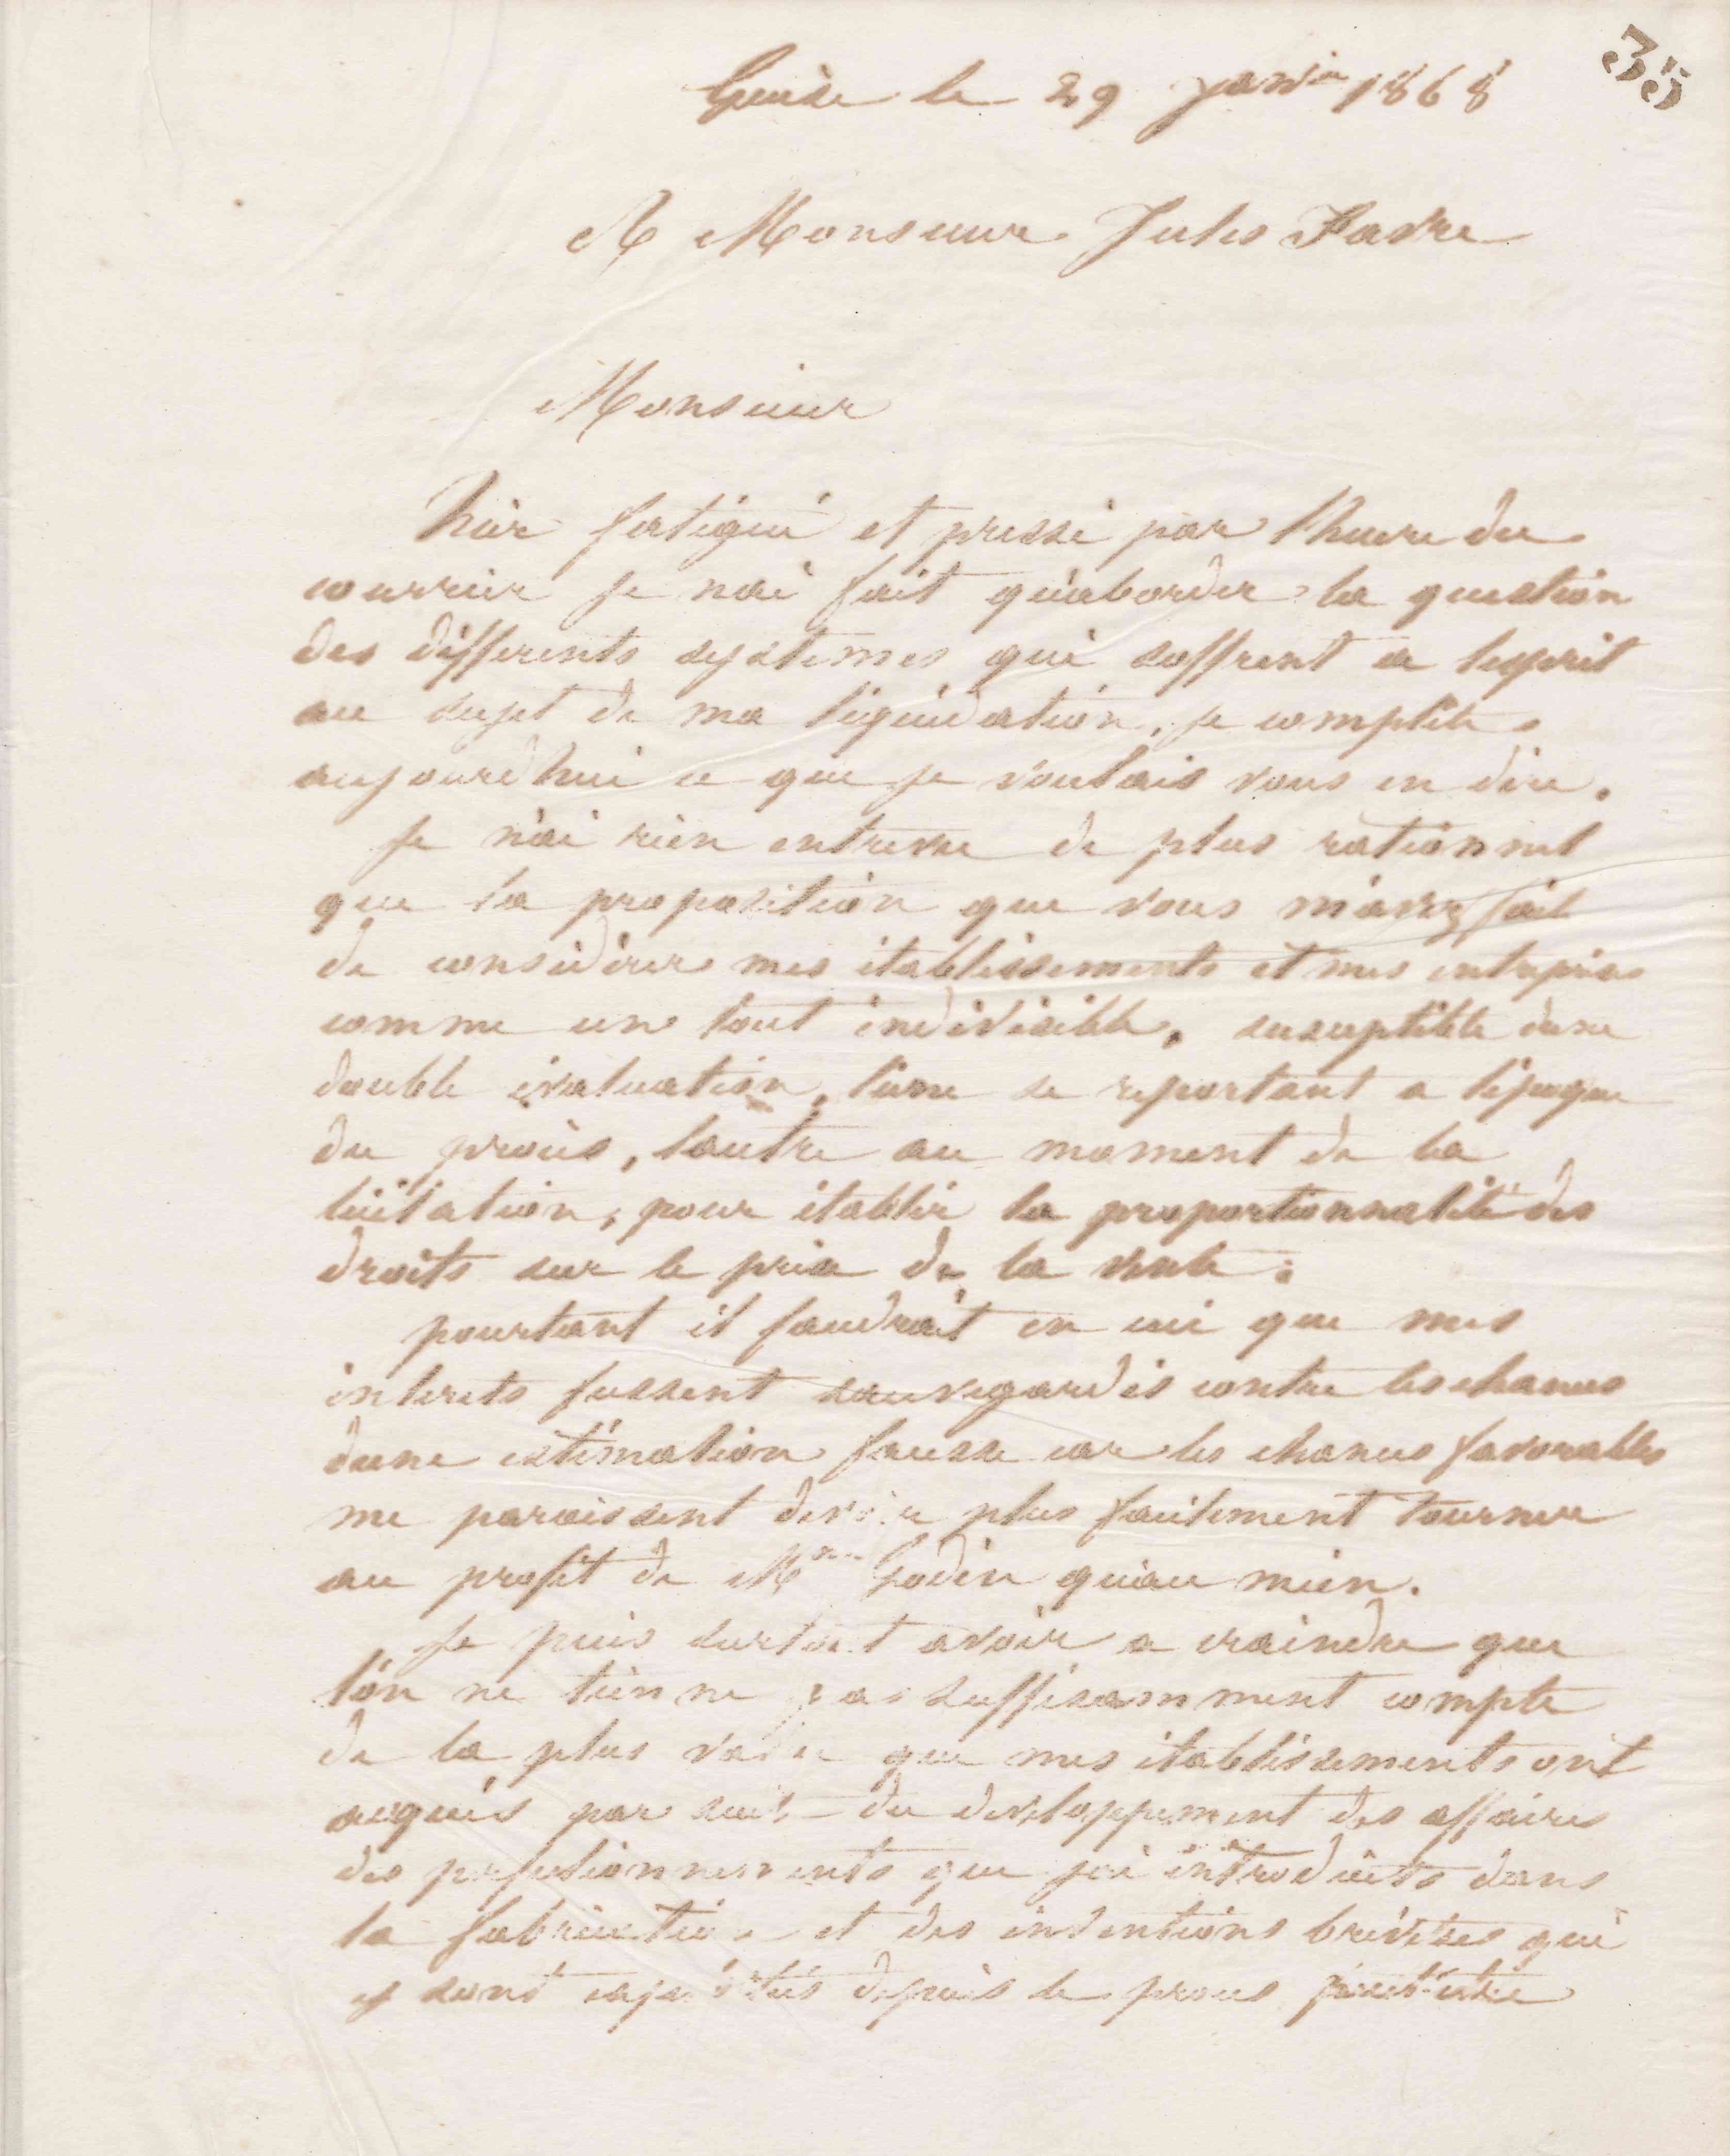 35
Guise le 29 janvier 1868
A Monsieur Jules Favre
Monsieur
hier fatigué et pressé par l'heure du
courrier je n'ai fait qu'aborder la question
des différents systemes qui soffrent a lesprit
au sujet de ma liquidation, je complète
aujourdhui ce que je voulais vous en dire.
Je n'ai rien entrevu de plus rationnel
que la proposition que vous m'avez fait
de considérer mes établissements et mes entreprises
comme un tout indivisible, susceptible dune
double évaluation, l'une se reportant a l'époque
du procès, lautre au moment de la
licitation, pour établir la proportionnalité des
droits sur le prix de la vente.
pourtant il faudrait en ceci que mes
interets fussent sauvegardés contre les chances
dune estimation fausse car les chances favorables
me paraissent devoir plus facilement tourner
au profit de Mme Godin qu'au mien.
Je puis surtout avoir a craindre que
l'on ne tienne pas suffisamment compte
de la plus value que mes établissements ont
acquis par suite du développement des affaires
des perfectionnements que j'ai introduits dans
la fabrication et des inventions brevetées qui
y sont ajoutés depuis le procès